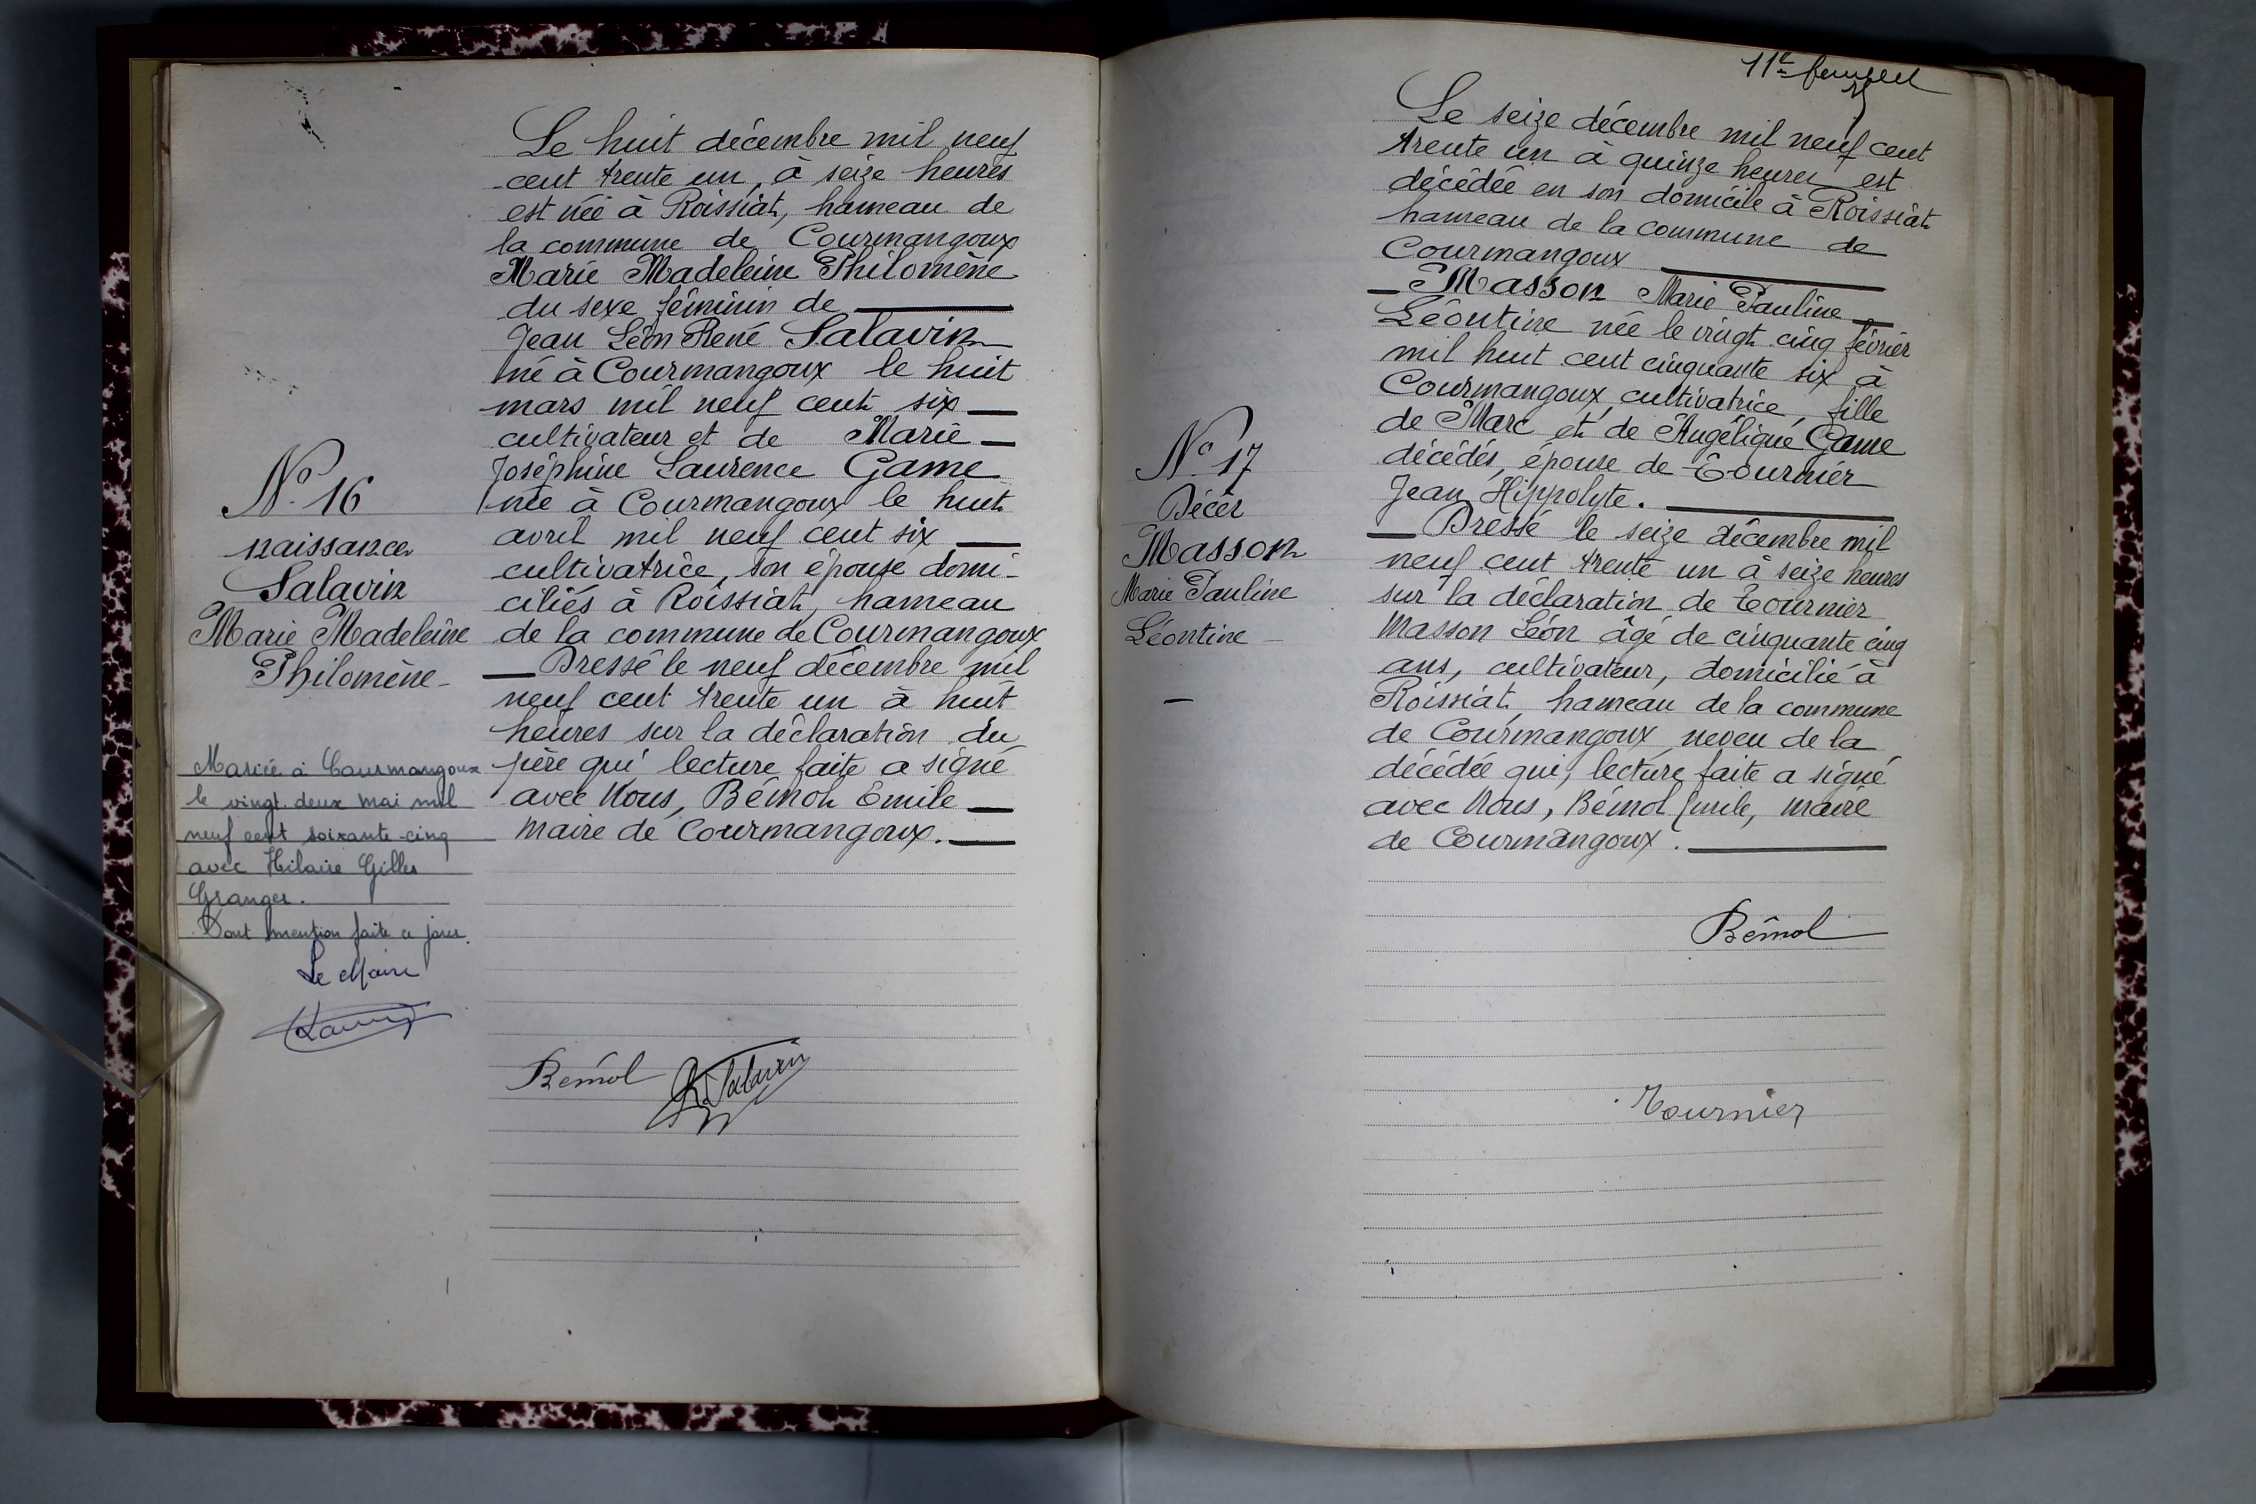 N° 16
naissance
Salavin
Marie Madeleine
Philomène
Mariée à Courmangoux
le vingt-deux mai mil
neuf cent soixante-cinq
avec Hilaire Gilles
Granger.
Dont mention faite ce jour.
Le Maire
Le huit décembre mil neuf
cent trente un, à seize heures
est née à Roissiat, hameau de
la commune de Courmangoux
Marie Madeleine Philomène
du sexe féminin de
Jean Léon René Salavin
né à Courmangoux le huit
mars mil neuf cent six
cultivateur et de Marie
Joséphine Laurence Game
née à Courmangoux le huit
avril mil neuf cent six
cultivatrice, son épouse domi-
ciliés à Roissiat, hameau
de la commune de Courmangoux
Dressé le neuf décembre mil
neuf cent trente un à huit
heures sur la déclaration du
père qui lecture faite a signé
avec Nous, Bémol Emile
Maire de Courmangoux.
Bémol R. Salavin
11e feuillet
N° 17
Décès
Masson
Marie Pauline
Léontine
Le seize décembre mil neuf cent
trente un à quinze heures est
décédée en son domicile à Roissiat
hameau de la commune de
Courmangoux
Masson Marie Pauline
Léontine née le vingt cinq février
mil huit cent cinquante six à
Courmangoux, cultivatrice, fille
de Marc et de Angélique Game
décédés, épouse de Tournier
Jean Hippolyte.
Dressé le seize décembre mil
neuf cent trente un à seize heures
sur la déclaration de Tournier
Masson Léon âgé de cinquante cinq
ans, cultivateur, domicilié à
Roissiat, hameau de la commune
de Courmangoux, neveu de la
décédée qui, lecture faite a signé
avec Nous, Bémol Emile, maire
de Courmangoux.
Bémol
Tournier